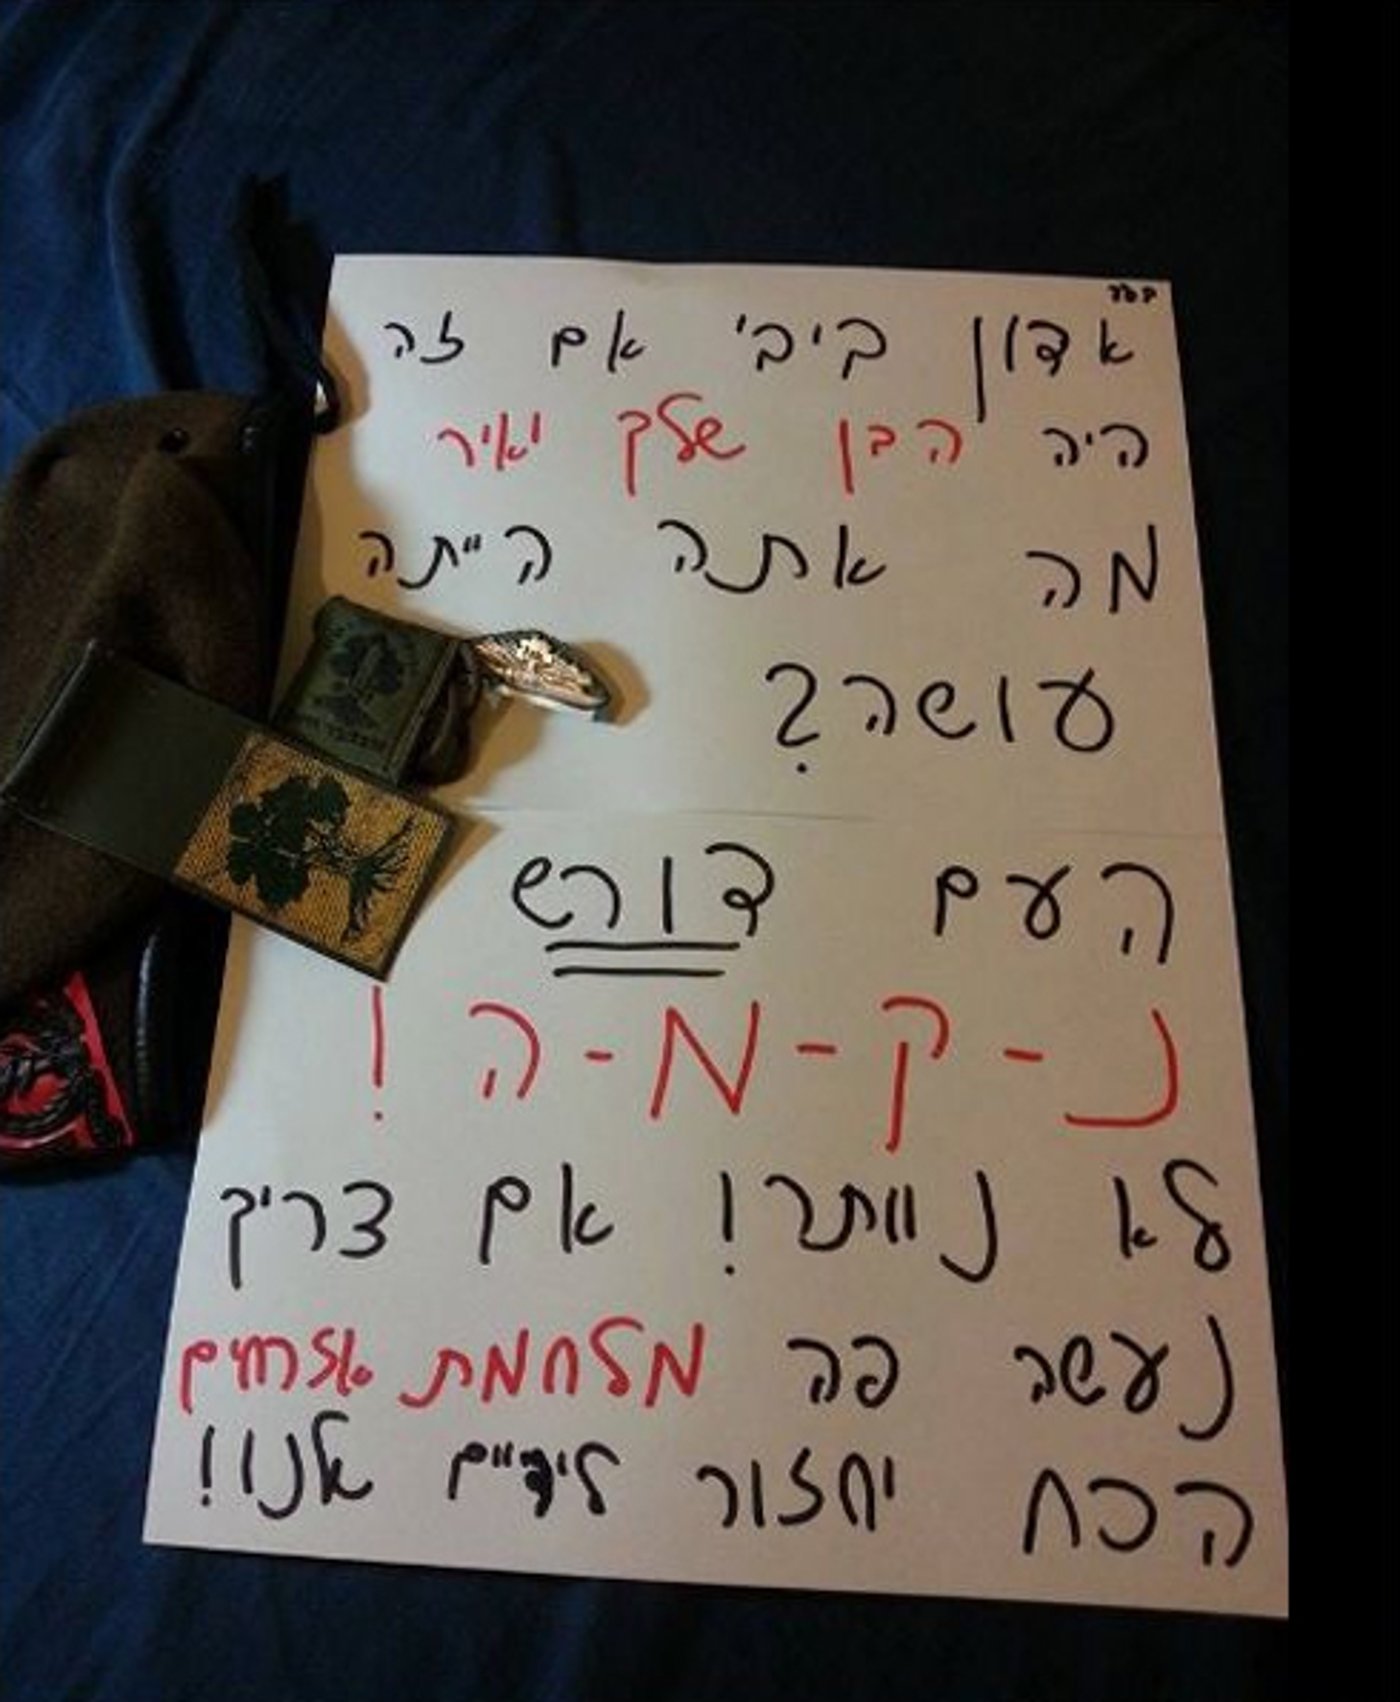 בס"ד
אדון ביבי אם זה
היה הבן שלך יאיר
מה אתה הייתה
עושה?
העם דורש
נ-ק-מ-ה!
לא נוותר! אם צריך
נעשה פה מלחמת אזרחים
הכח יחזור לידיים אלנו!